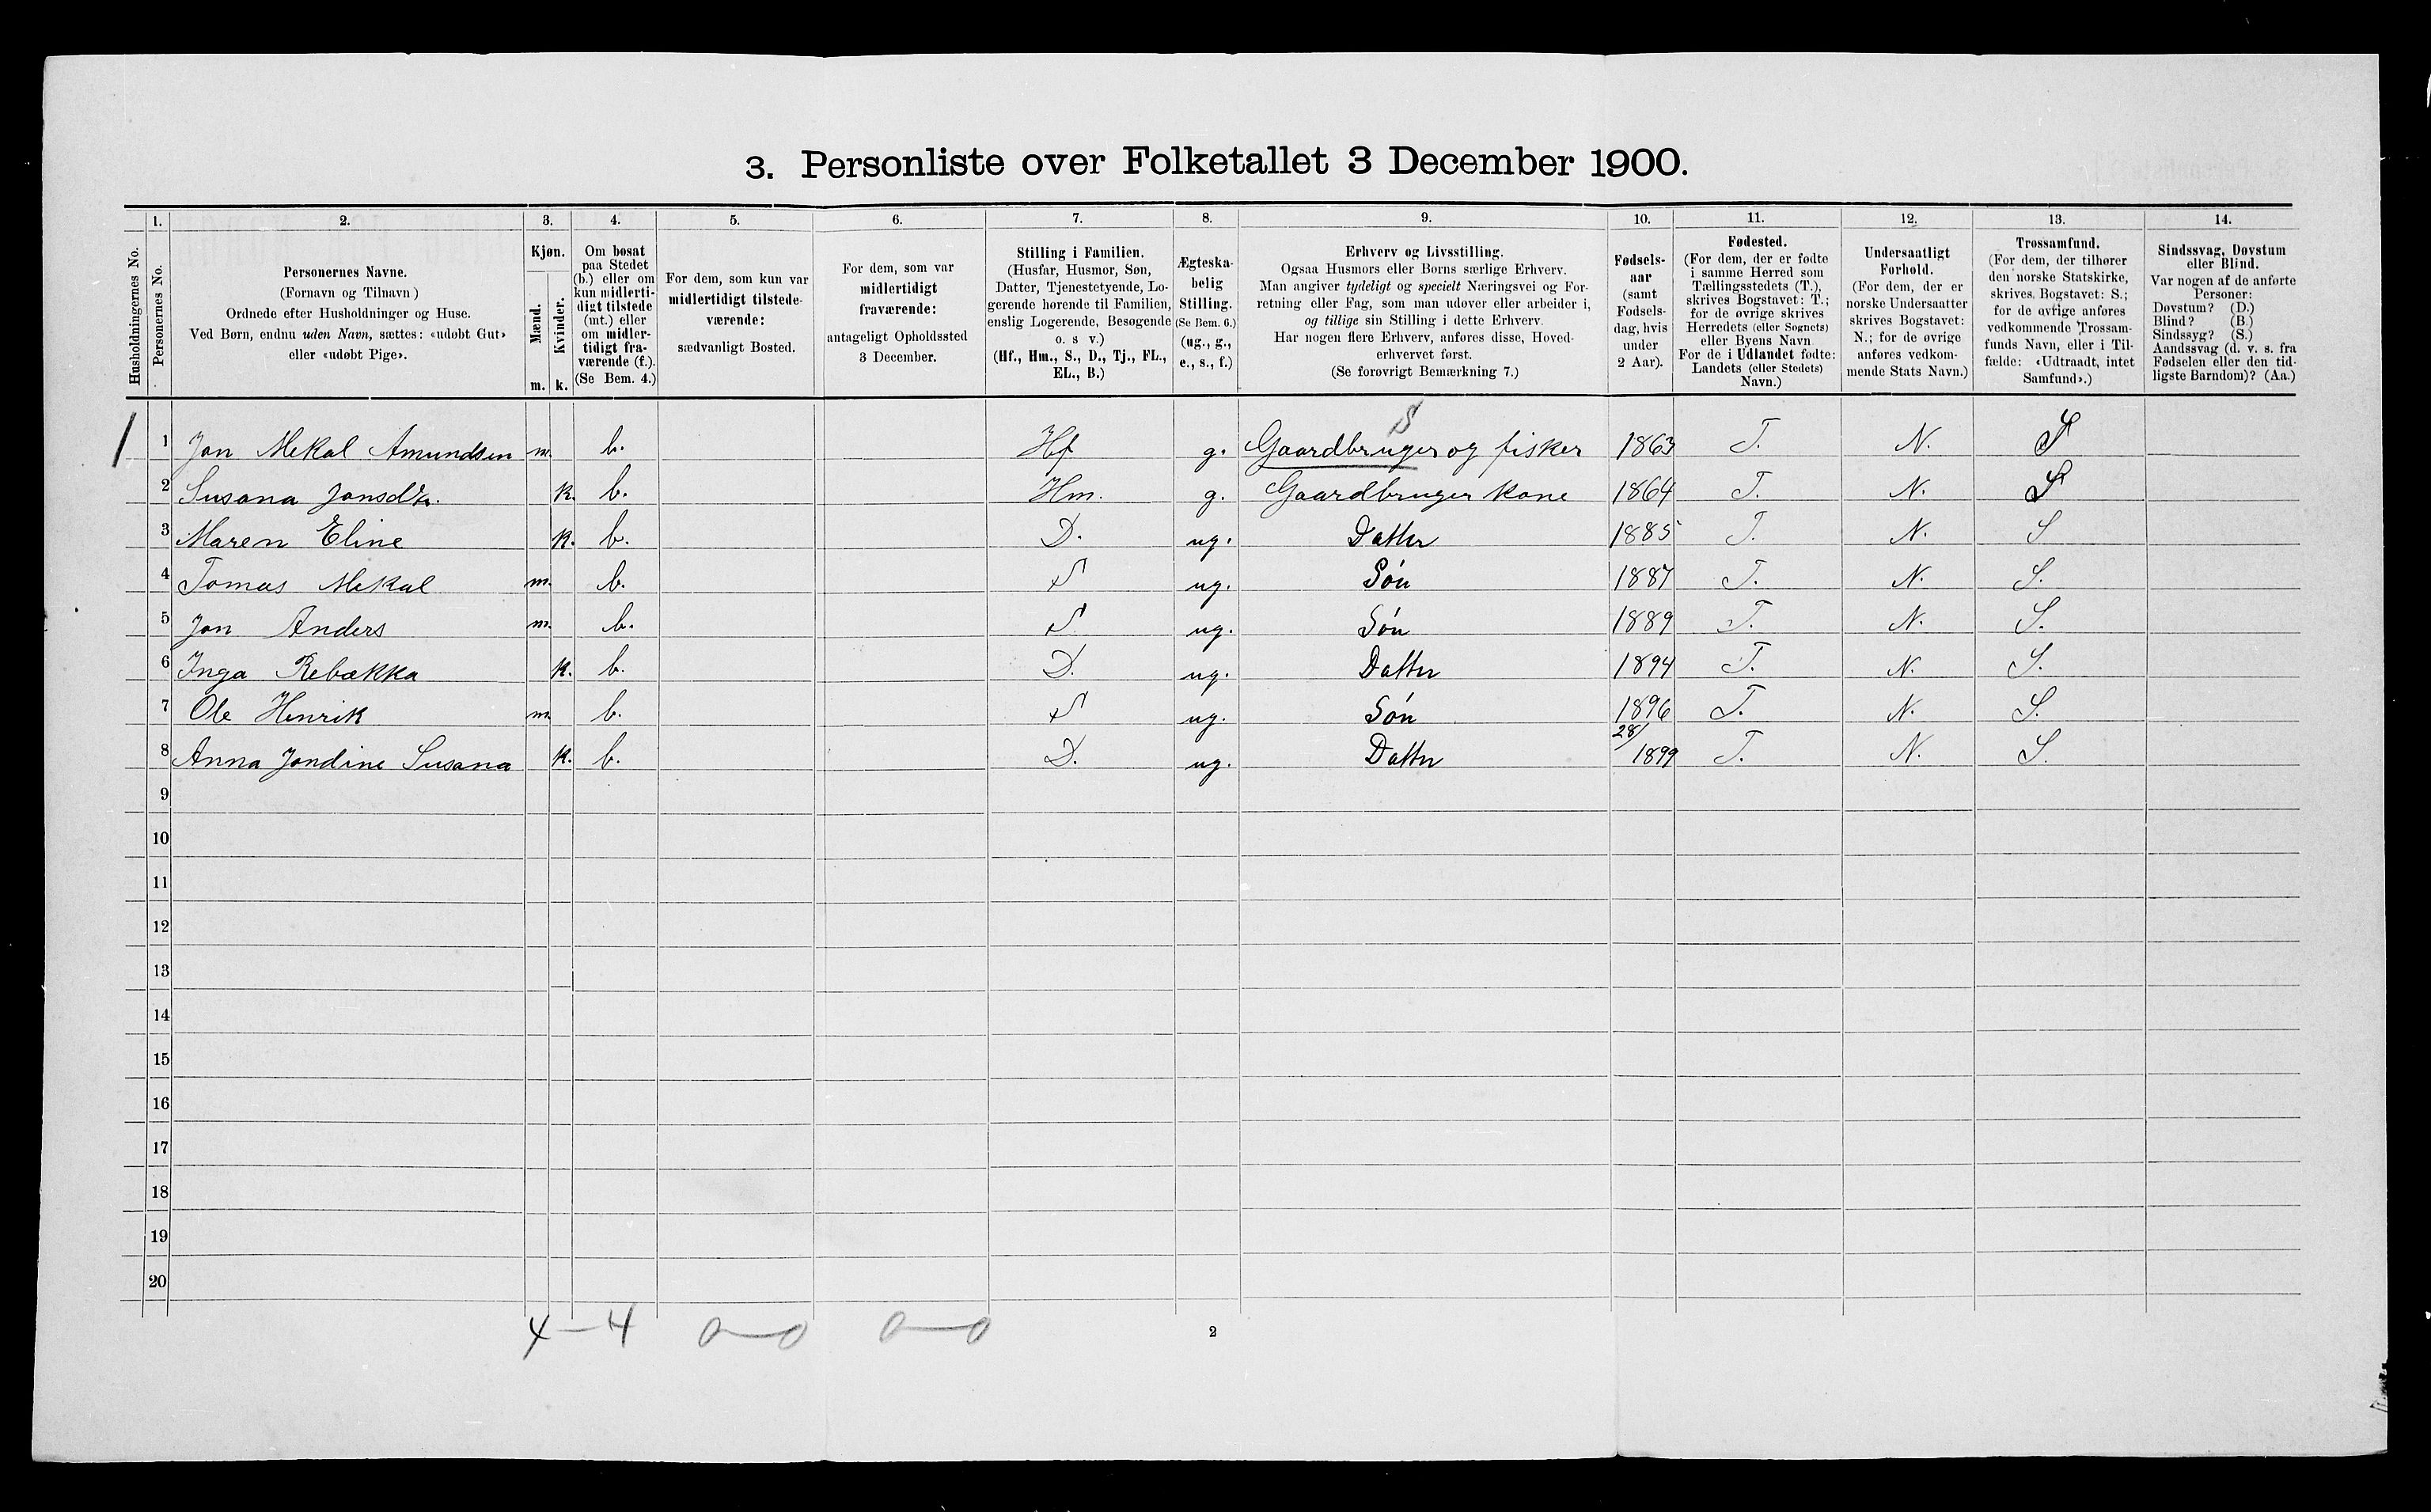 3. Personliste over Folketallet 3 December 1900.
1. 2. 3. 4. 5. 6. 7. 8. 9. 10. 11. 12. 13. 14.
Husholdningernes No.
Personernes No.
Personernes Navne.
(Fornavn og Tilnavn )
Ordnede efter Husholdninger og Huse.
Ved Børn, endnu uden Navn, sættes: «udøbt Gut»
eller «udøbt Pige».
Kjøn.
Mænd.
Kvinder.
m. k.
Om bosat
paa Stedet
(b.) eller om
kun midlerti-
digt tilstede
(mt.) eller
om midler-
tidigt fra-
værende (f.).
(Se Bem. 4.)
For dem, som kun var
midlertidigt tilstede-
værende:
sædvanligt Bosted.
For dem, som var
midlertidigt
fraværende:
antageligt Opholdssted
3 December.
Stilling i Familien.
(Husfar, Husmor, Søn,
Datter, Tjenestetyende, Lo-
gerende hørende til Familien,
enslig Logerende, Besøgende
o. s v.)
(Hf., Hm., S., D., Tj., FL.,
EL., B.)
Ægteska-
belig
Stilling.
(Se Bem. 6.)
(ug., g.,
e., s., f.)
Erhverv og Livsstilling.
Ogsaa Husmors eller Børns særlige Erhverv.
Man angiver tydeligt og specielt Næringsvei og For-
retning eller Fag, som man udøver eller arbeider i,
og tillige sin Stilling i dette Erhverv.
Har nogen flere Erhverv, anføres disse, Hoved-
erhvervet først.
(Se forøvrigt Bemærkning 7.)
Fødsels-
aar
(samt
Fødsels-
dag, hvis
under
2 Aar).
Fødested.
(For dem, der er fødte
i samme Herred som
Tællingsstedets (T.),
skrives Bogstavet: T.;
for de øvrige skrives
Herredets (eller Sognets)
eller Byens Navn
For de i Udlandet fødte:
Landets (eller Stedets)
Navn.)
Undersaatligt
Forhold.
(For dem, der er
norske Undersaatter
skrives Bogstavet:
N.; for de øvrige
anføres vedkom-
mende Stats Navn.)
Trossamfund.
(For dem, der tilhører
den norske Statskirke,
skrives Bogstavet: S.;
for de øvrige anføres
vedkommende Trossam-
funds Navn, eller i Til-
fælde: «Udtraadt, intet
Samfund».)
Sindssvag, Døvstum
eller Blind.
Var nogen af de anførte
Personer:
Døvstum? (D.)
Blind? (B.)
Sindssyg? (S.)
Aandssvag (d. v. s. fra
Fødselen eller den tid-
ligste Barndom)? (Aa.)
S
1 1 Jon Mekal Amundsen m. b. Hf g. Gaardbruger og fisker 1863 T. N. S
2 Susana Jonsdtr. k. b. Hm. g. Gaardbruger kone 1864 T. N. S
3 Maren Eline k. b. D. ug. Datter 1885 T. N. S
4 Tomas Mekal m. b. S ug. Søn 1887 T. N. S.
5 Jon Anders m. b. S ug. Søn 1889 T. N. S.
6 Inga Rebækka k. b. D. ug. Datter 1894 T. N. S.
7 Ole Henrik m. b. S ug. Søn 1896 T. N. S.
8 Anna Jondine Susana k. b. D. ug. Datter 28/ 1899 T. N. S.
9
10
11
12
13
14
15
16
17
18
19
20
4 — 4 0—0 0—0
2